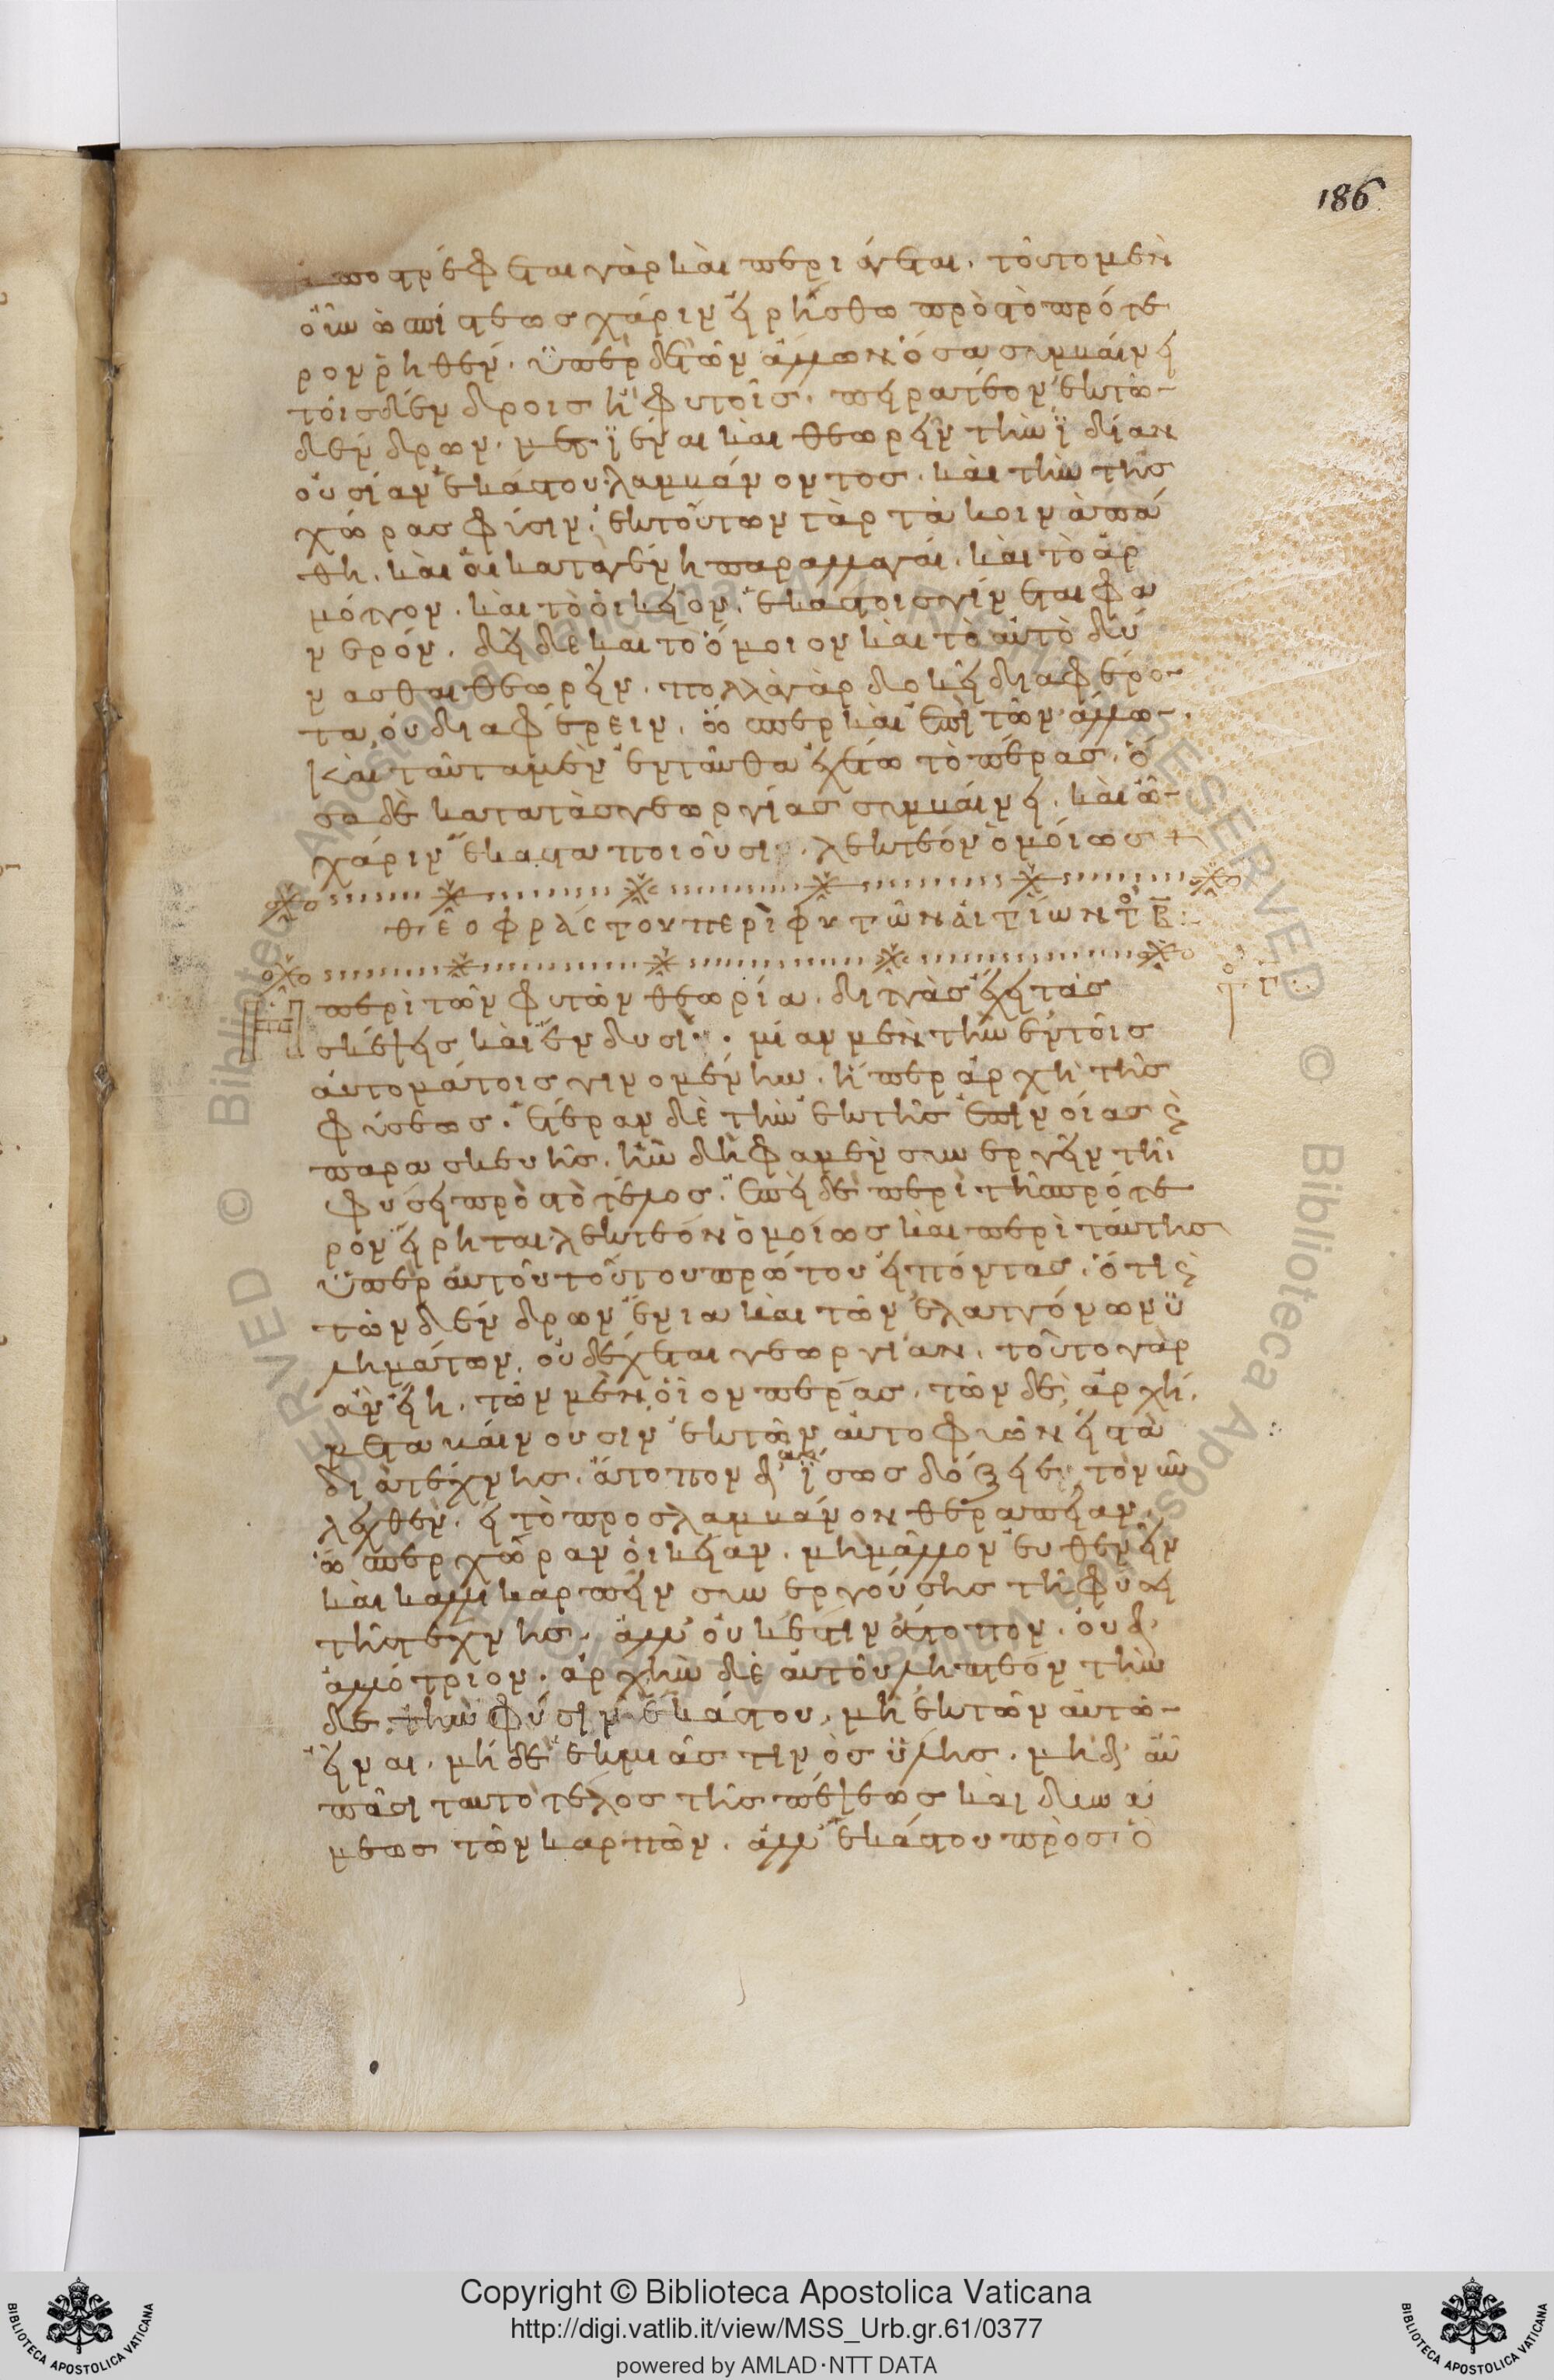 186
ἀποστρέφεται γὰρ καὶ περιάγεται. τοῦτο μὲν
οὖν ὡς πίστεως χάριν εἰρήσθω πρὸς τὸ πρότε
ρον ῥηθέν. ὑπὲρ δὲ τῶν ἄλλων ὅσα συμβαίνει
τοῖς δένδροις ἢ φυτοῖς. πειρατέον ἐκ τῶ
δένδρων. μετιέναι καὶ θεωρεῖν τὴν ἰδίαν
οὐσίαν ἑκάστου λαμβάνοντος. καὶ τὴν τῆς
χώρας φύσιν. ἐκ τούτων γὰρ τὰ κοινὰ πά
θη. καὶ αἱ κατὰ γένη παραλλαγαί. καὶ τὸ ἁρ
μόττον. καὶ τὸ οἰκεῖον. ἑκάστοις γίνεται φα
νερόν. δεῖ δὲ καὶ τὸ ὅμοιον καὶ τὸ αὐτὸ δύ
νασθαι θεωρεῖν. πολλὰ γὰρ δοκεῖ διαφέρο
τα οὐ διαφέρειν. ὥσπερ καὶ ἐπὶ τῶν ἄλλω
Καὶ ταῦτα μὲν ἐνταῦθα ἐχέτω τὸ πέρας. ὅ
σα δὲ κατὰ τὰς γεωργίας συμβαίνει. καὶ ὧ
χάριν ἕκαστα ποιοῦσι. λεκτέον ὁμοίως
θεοφράστου περὶ φυτῶν αἰτίων το Β
το Γ
Ἡ περὶ τῶν φυτῶν θεωρία. διττὰς ἔχει τὰς
σκέψεις καὶ ἐν δυσί. μίαν μὲν τὴν ἐν τοῖς
αὐτομάτοις γινομένην. ἥπερ ἀρχὴ τῆς
φύσεως. ἑτέραν δὲ τὴν ἐκ τῆς ἐπινοίας ϛ
παρασκευῆς. ἣν δή φαμεν συνεργεῖν τῆι
φύσει πρὸς τὸ τέλος. ἐπεὶ δὲ περὶ τῆς προτέ
ρον εἴρηται λεκτέον ὁμοίως καὶ περὶ ταύτης
ὑπὲρ αὐτοῦ τούτου πρώτου εἰπόντας. ὅτι ϛ
τῶν δένδρων ἔνια καὶ τῶν ἐλαττόνων ὑ
λημάτων. οὐ δέχεται γεωργίαν. τοῦτο γὰρ
ἂν εἴη. τῶν μὲν οἷον πέρας. τῶν δὲ, ἀρχή.
μεταβαίνουσιν ἐκ τῶν αὐτοφυῶν εἰς τὰ
διὰ τέχνης. ἄτοπον δ' ἂν ἴσως δόξειε, τὸν ὢ
λεχθὲν. εἰ τὸ προσλαμβάνον θεραπείαν.
ὥσπερ χώραν οἰκείαν. μὴ μᾶλλον εὐθενεῖν
καὶ καλλικαρπεῖν συνεργούσης τῇ φύσει
τῆς τέχνης. ἀλλ' οὐκ ἔστιν ἄτοπον. οὐδ'
ἀλλότριον. ἀρχὴν δὲ αὐτοῦ ληπτέον τὴν
δε. τὴν φύσιν ἑκάστου, μὴ ἐκ τῶν αὐτῶ
εἶναι. μὴ δὲ ἐκ μιᾶς τινὸς ὕλης. μηδ' αὖ
πᾶσι ταυτὸ τέλος τῆς πέψεως καὶ δυνά
μεως τῶν καρπῶν. ἀλλ' ἑκάστου πρὸς ὃ
Copyright © Biblioteca Apostolica Vaticana
http://digi.vatlib.it/view/MSS_Urb.gr.61/0377
powered by AMLAD·NTT DATA